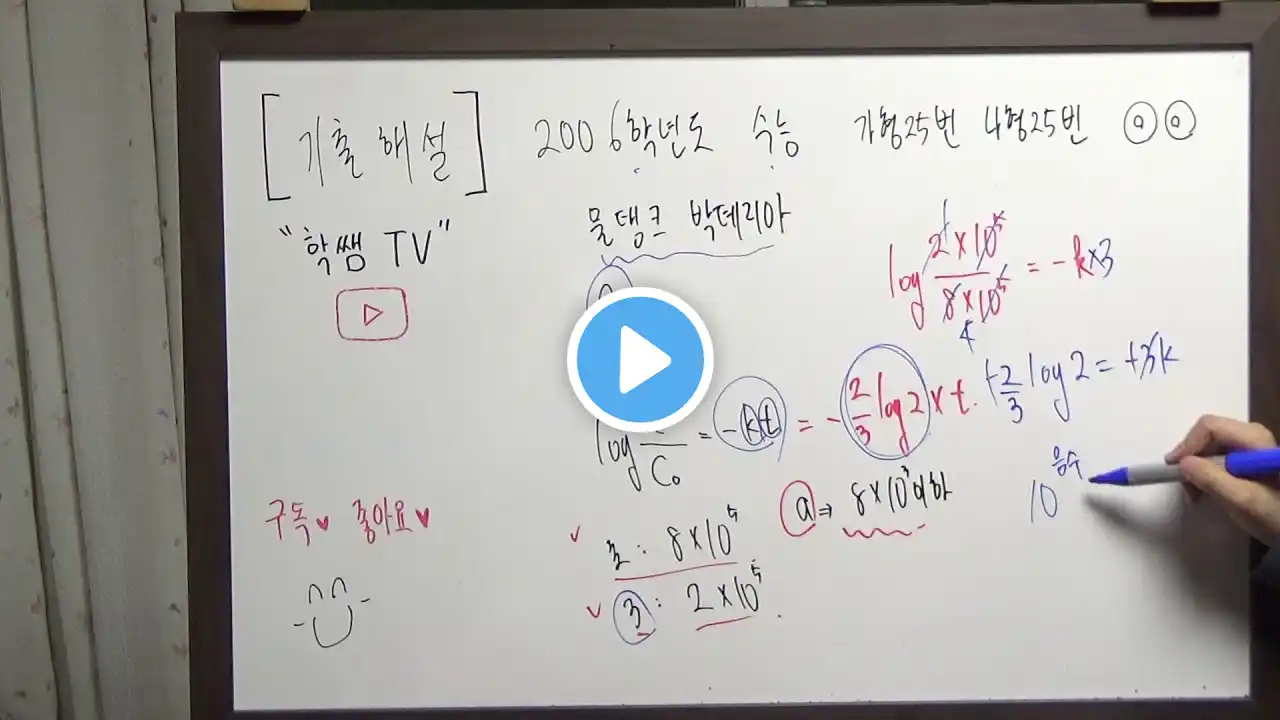 [기출 해설]
2006학년도 수능 가형25번 나형25번 ⓐ ⓐ
"학쌤 TV"
물탱크 박테리아
log 2×10⁵ / 8×10⁵ = -k×3
4
log C₀ = -kt = -2/3 log2 × t.
+2/3 log2 = +3k
ⓐ ⇒ 8×10³이하
10^음수
구독♥ 좋아요♥
초 : 8×10⁵
③ : 2×10⁵.